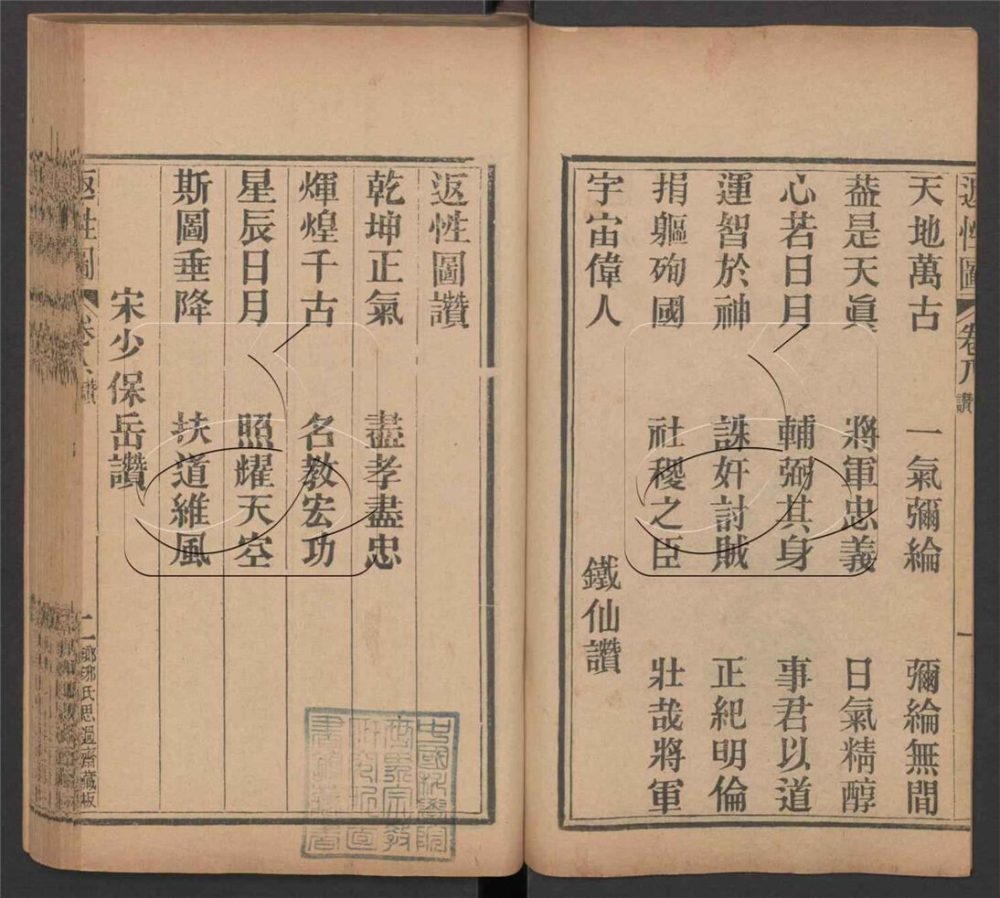 返性圖 卷八 讚 一
天地萬古 一氣彌綸 彌綸無間
葢是天眞 將軍忠義 日氣精醇
心若日月 輔弼其身 事君以道
運智於神 誅奸討賊 正紀明倫
捐軀殉國 社稷之臣 壯哉將軍
宇宙偉人
鐵仙讚
返性圖讚
乾坤正氣 盡孝盡忠
煇煌千古 名教宏功
星辰日月 照耀天空
斯圖垂降 扶道維風
宋少保岳讚
返性圖 卷八 讚 二 瑯琊氏思過齋藏板
中國科學院
世界宗教
研究所圖
書館藏書